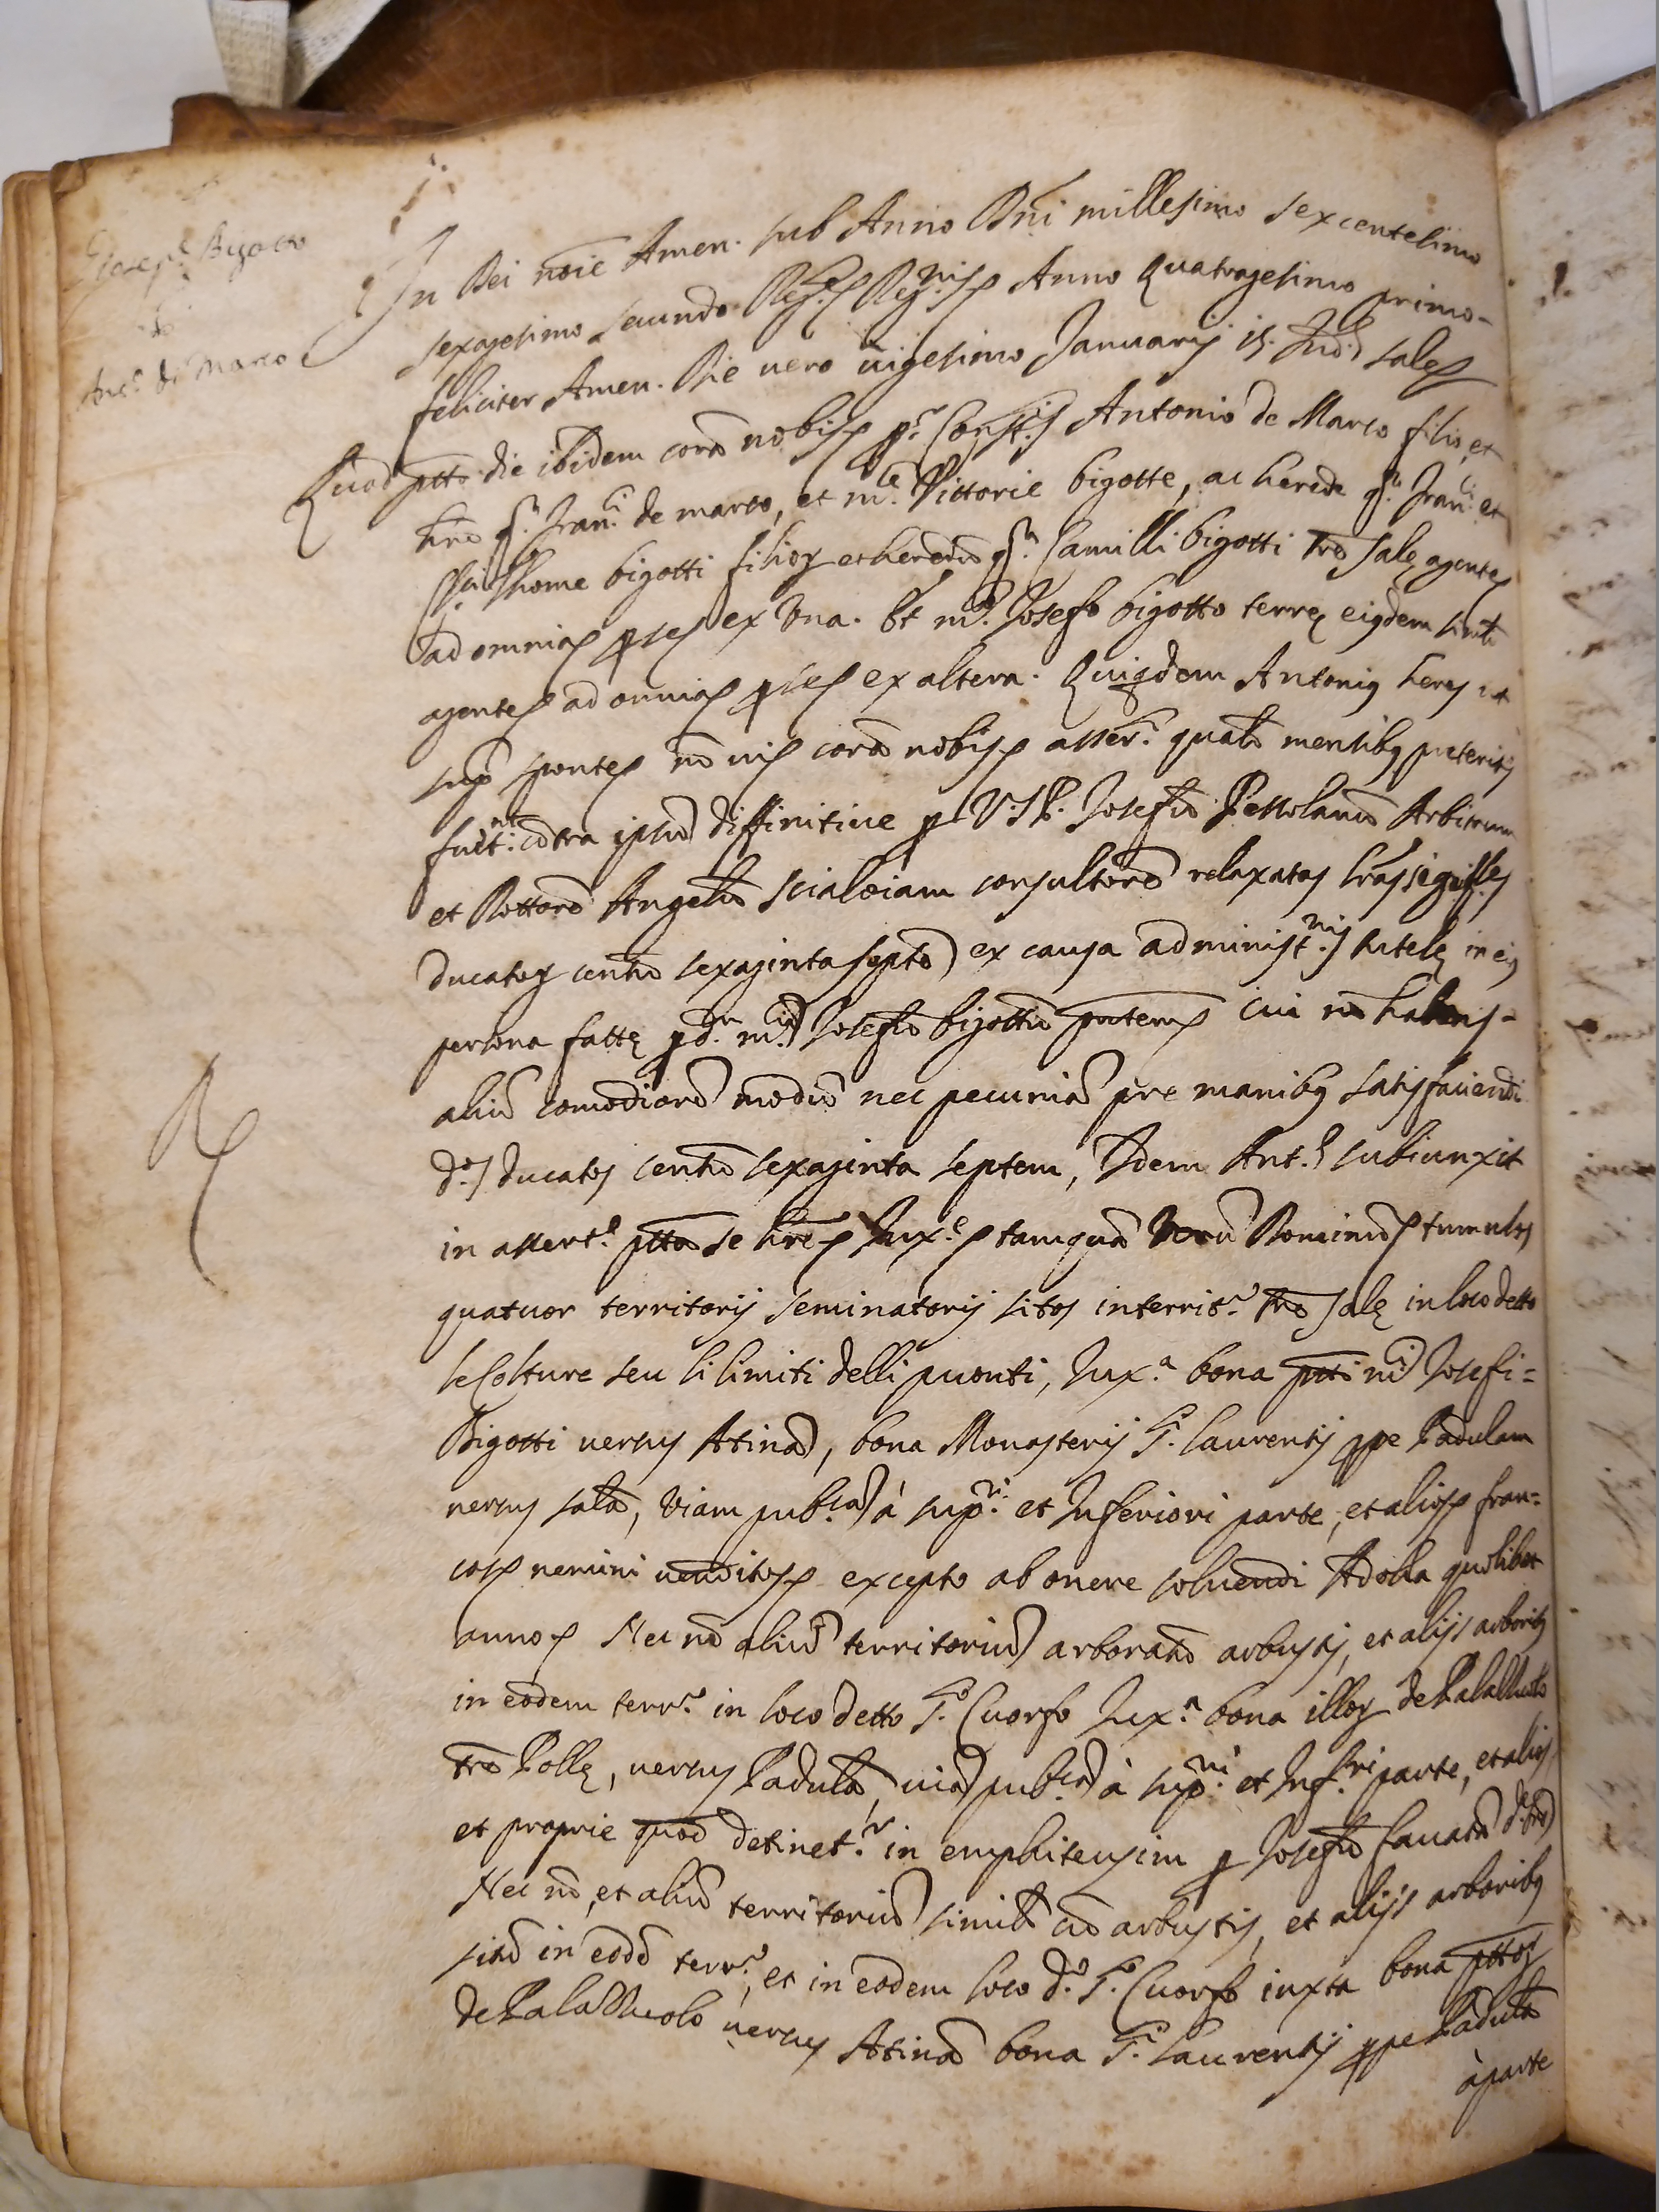 Joseph Bigotto
&
Ant.o de Marco
In Dei noie Amen. sub Anno Dni millesimo sexcentesimo
sexagesimo secundo Reg. Regnis Anno Quatragesimo primo-
feliciter Amen. Die vero vigesimo Januarij 15. Ind. Sale
Quod ptto die ibidem cora nobis p.r Const.s Antonio de Marco filio, et
hrē q.m Fran.i de marco, et m.ce Vittorie bigotte, ac herede q.m Fran.i et
Thome bigotti filioȝ et heredū q.m Camilli bigotti Trē Salę agente
ad omnia ex Una. Et m.co Josefo bigotto terrę eiqdem simili
agente ad omnia ex altera. Quiqdem Antoniq heres ut
sup.a sponte nō vi cora nobis asser.t quatr mensibq preteritis
fuert. cōtra ipsū diffinitive p U.J.D. Josefū Pessolanū Arbitrum
et Dottorē Angelū Scialoiam consultorē relaxatas lras
Ducatoȝ centū sexaginta septē ex causa administ.nis tutelę in eiq
persona fattę p d. m.cū Josefū bigottū cui nō habens-
aliū comodiorē modū nec pecuniā pre manibq satisfaciendi
d.os ducatos centū sexaginta septem, Idem Ant.s subiunxit
in assert.e ptta se hre Jux.e tamquā Verū Dominū tumulos
quatuor territorij seminatorij sitos in territ.o Trē Salę in loco detto
le Colture seu li limiti delli puonti, Jux.a bona ptti m.ci Josefi=
Bigotti versus Atinā, bona Monasterij S.i Laurentij ppe Padulam
versus salā, Viam pub.cā à sup.ri et Inferiori parte, et alios fran=
cos nemini venditos excepto ab onere solvendi Adoha quolibet
anno Nec nō aliū territoriū arboratū arbustis, et alijs arboribq
in eodem terr.o in loco detto S.o Cuorfo Jux.a bona illoȝ de Palazzuolo
trē Pollę, versus Padulā, viā pub.cā à sup.ri et Inf.ri parte, et alios
et proprie quod detinet.r in emphiteusim p Josefū Cauarā
Nec nō, et aliū territoriū similr cū arbustis, et alijs arboribq
sitū in eodē terr.o, et in eodem loco d.o S.o Cuorfo iuxta bona pttoȝ
de Palazzuolo versus Atinā bona S.i Laurentij ppe Padulā
à parte